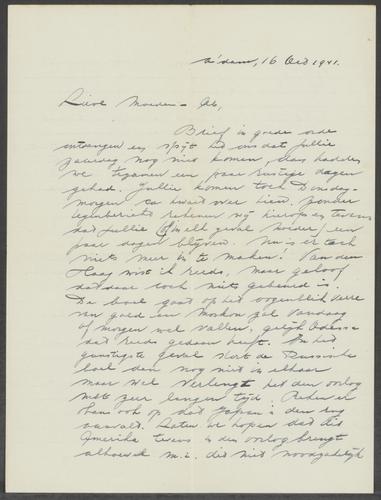 A'dam, 16 Oct 1941.
Lieve Moeder - Ab,
Brief in goede orde
ontvangen en spijt het ons dat jullie
Zaterdag nog niet komen, dan hadden
we tezamen een paar rustige dagen
gehad. Jullie komen toch Dinsdag-
morgen kwart over tien. Zonder
tegenbericht rekenen wij hierop en tevens
dat jullie in elk geval Moeder een
paar dagen blijven. Nu is er toch
niets meer te maken! Van den
Haag wist ik reeds, maar geloof
dat daar toch niets gebeurd is.
De boel gaat op het oogenblik verre
van goed en Moskou zal vandaag
of morgen wel vallen, gelijk Odessa
dat reeds gedaan heeft. In het
gunstigste geval stort de Russische
boel dan nog niet in elkaar
maar wel verlengt het den oorlog
met zeer langen tijd. Reden en
kans ook op dat Japan in den rug
aanvalt. Laten we hopen dat dit
Amerika tevens in den oorlog brengt
alhoewel m.i. dit niet noodzakelijk